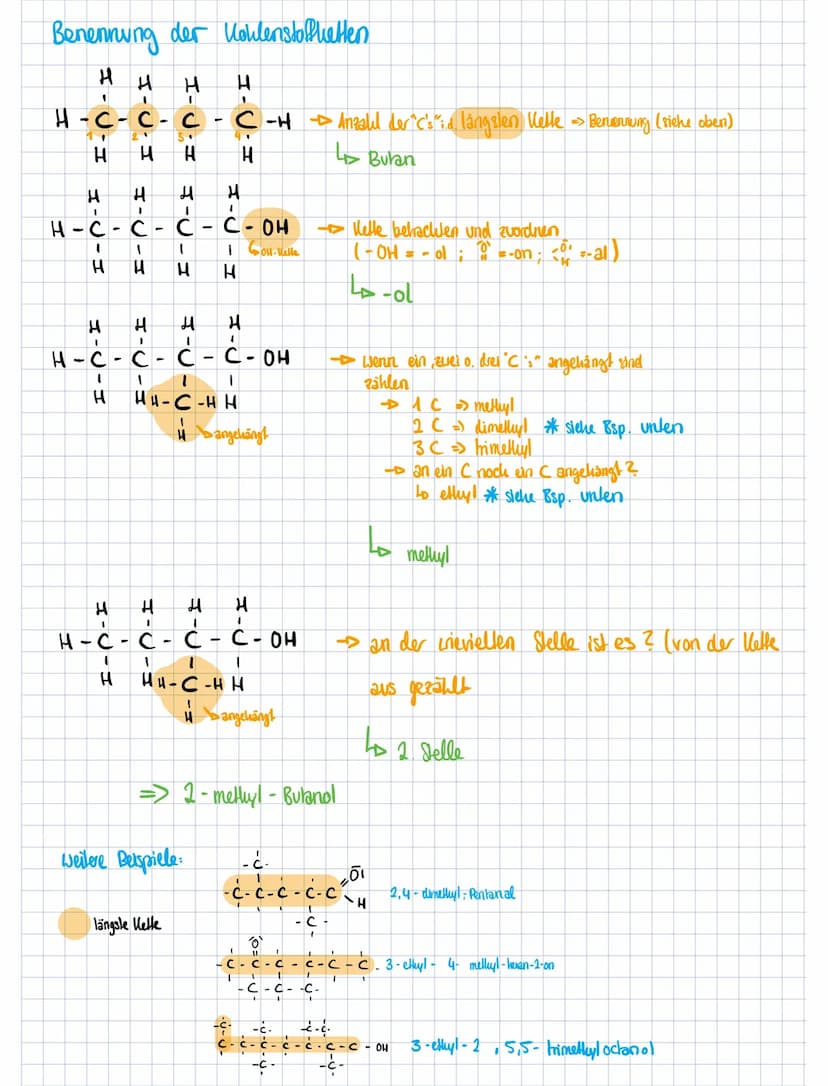 Benennung der Kohlenstoffketten
H H H H
H - C - C - C - C - H → Anzahl der "C's" i.d. längsten Kette ⇒ Benennung (siehe oben)
1 2 3 4
H H H H ↳ Butan
H H H H
H - C - C - C - C - OH → Kette betrachten und zuordnen
↳ OH-Kette (-OH = -ol ; O = -on ; O H = -al)
H H H H
↳ -ol
H H H H
H - C - C - C - C - OH → wenn ein, zwei o. drei "C's" angehängt sind
zählen
H H H - C - H H → 1 C ⇒ methyl
2 C ⇒ dimethyl * siehe Bsp. unten
H ↳ angehängt
3 C ⇒ trimethyl
→ an ein C noch ein C angehängt?
↳ ethyl * siehe Bsp. unten
↳ methyl
H H H H
H - C - C - C - C - OH → an der wievielten Stelle ist es? (von der Kette
H H H - C - H H aus gezählt
H ↳ angehängt
↳ 2. Stelle
⇒ 2 - methyl - Butanol
weitere Beispiele:
- C -
- C - C - C - C - C O H 2,4 - dimethyl - Pentanal
- C -
längste Kette
O
- C - C - C - C - C - C - 3 - ethyl - 4 - methyl - hexan - 2 - on
- C - C - - C -
- C - - C - - C - C -
C - C - C - C - C - C - C - OH 3 - ethyl - 2 , 5,5 - trimethyl octanol
- C - - C -